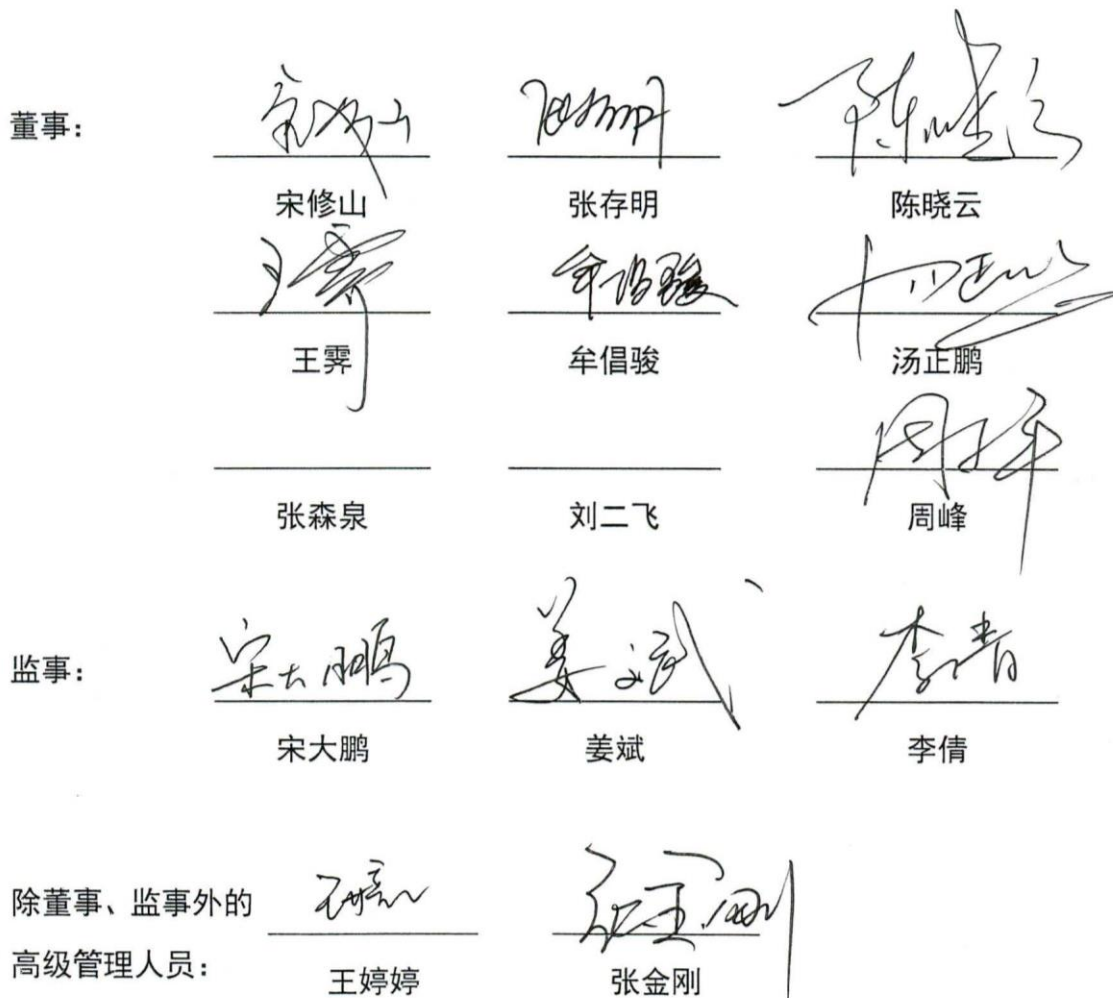 董事：
宋修山 张存明 陈晓云
王霁 牟倡骏 汤正鹏
张森泉 刘二飞 周峰
宋大鹏 姜斌 李倩
监事：
宋大鹏 姜斌 李倩
除董事、监事外的
高级管理人员：
王婷婷 张金刚